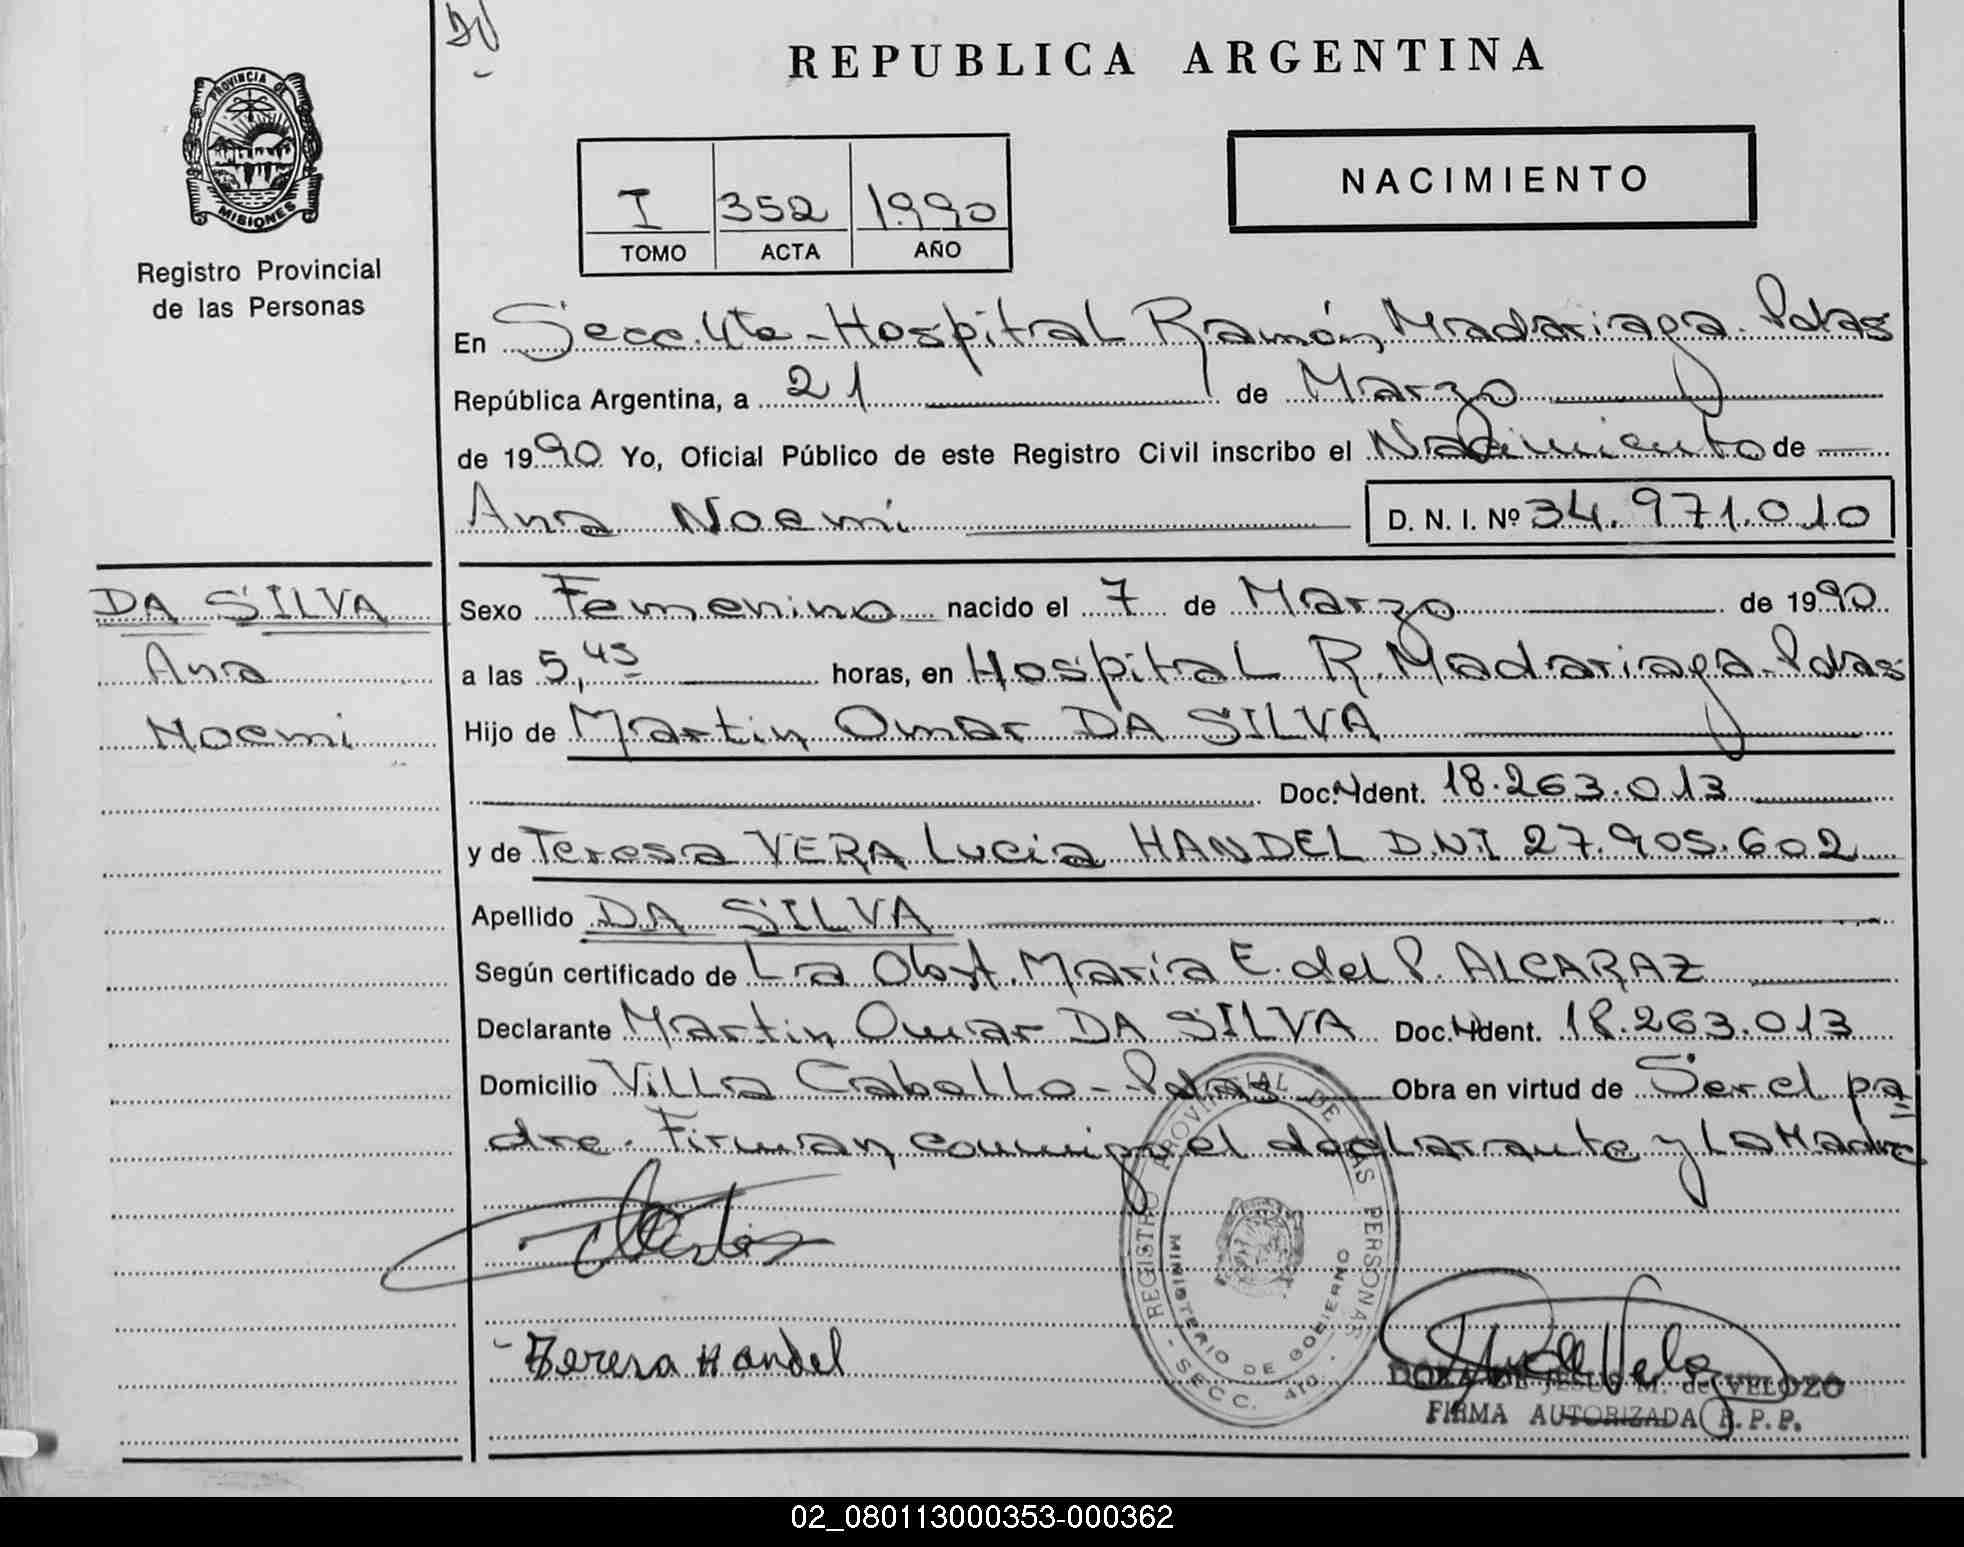 REPUBLICA ARGENTINA
PROVINCIA DE
MISIONES
Registro Provincial
de las Personas
I 352 1990
TOMO ACTA AÑO
NACIMIENTO
En Secc. 4ta - Hospital Ramón Madariaga. Pdas
República Argentina, a 21 de Marzo
de 1990 Yo, Oficial Público de este Registro Civil inscribo el Nacimiento de
Ana Noemi D. N. I. Nº 34.971.010
DA SILVA
Ana
Noemi
Sexo Femenino nacido el 7 de Marzo de 1990
a las 5,45 horas, en Hospital R. Madariaga - Pdas
Hijo de Martin Omar DA SILVA
Doc. Ident. 18.263.013
y de Teresa VERA Lucia HANDEL D.N.I 27.905.602
Apellido DA SILVA
Según certificado de La Obst. María E. del P. ALCARAZ
Declarante Martin Omar DA SILVA Doc. Ident. 18.263.013
Domicilio Villa Cabello - Pdas Obra en virtud de Ser el pa
dre. Firman conmigo el declarante y la Madre
REGISTRO PROVINCIAL DE LAS PERSONAS
MINISTERIO DE GOBIERNO
- SECC. 4ta. -
Teresa Handel
DORA DE JESUS M. de VELOZO
FIRMA AUTORIZADA R.P.P.
02_080113000353-000362